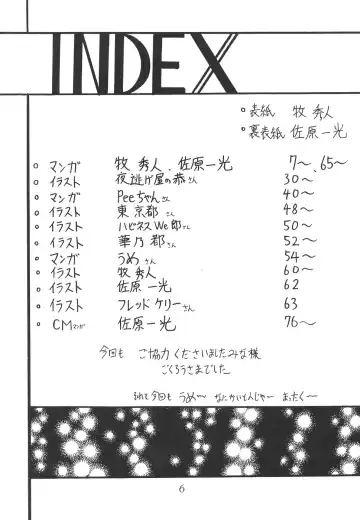 INDEX
○表紙 牧 秀人
○裏表紙 佐原一光
○ マンガ 牧 秀人、佐原一光 7〜、65〜
○ イラスト 夜逃げ屋の恭さん 30〜
○ マンガ Peeちゃんさん 40〜
○ イラスト 東京都さん 48〜
○ イラスト ハピネスWe郎さん 50〜
○ イラスト 華乃郡さん 52〜
○ マンガ うめさん 54〜
○ イラスト 牧 秀人 60〜
○ イラスト 佐原一光 62
○ イラスト フレッドケリーさん 63
○ CMマンガ 佐原一光 76〜
今回も ご協力くださいましたみな様
ごくろうさまでした。
今回も うめ〜 なにかいてんじゃー まったく〜
6